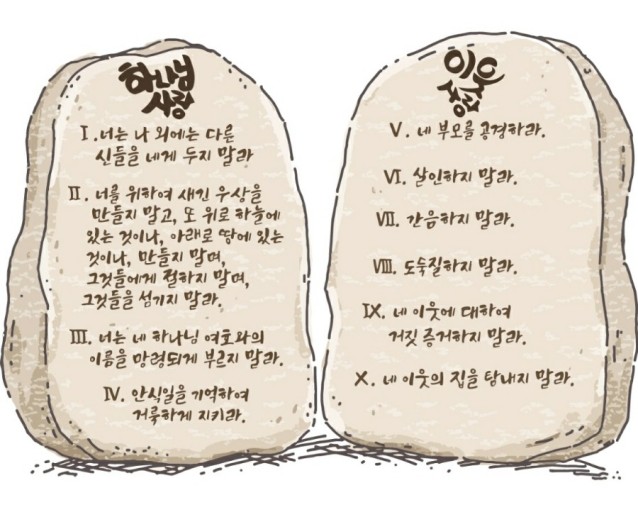 하나님
사랑
I. 너는 나 외에는 다른
신들을 네게 두지 말라
II. 너를 위하여 새긴 우상을
만들지 말고, 또 위로 하늘에
있는 것이나, 아래로 땅에 있는
것이나, 만들지 말며,
그것들에게 절하지 말며,
그것들을 섬기지 말라.
III. 너는 네 하나님 여호와의
이름을 망령되게 부르지 말라.
IV. 안식일을 기억하여
거룩하게 지키라.
이웃
사랑
V. 네 부모를 공경하라.
VI. 살인하지 말라.
VII. 간음하지 말라.
VIII. 도둑질하지 말라.
IX. 네 이웃에 대하여
거짓 증거하지 말라.
X. 네 이웃의 집을 탐내지 말라.